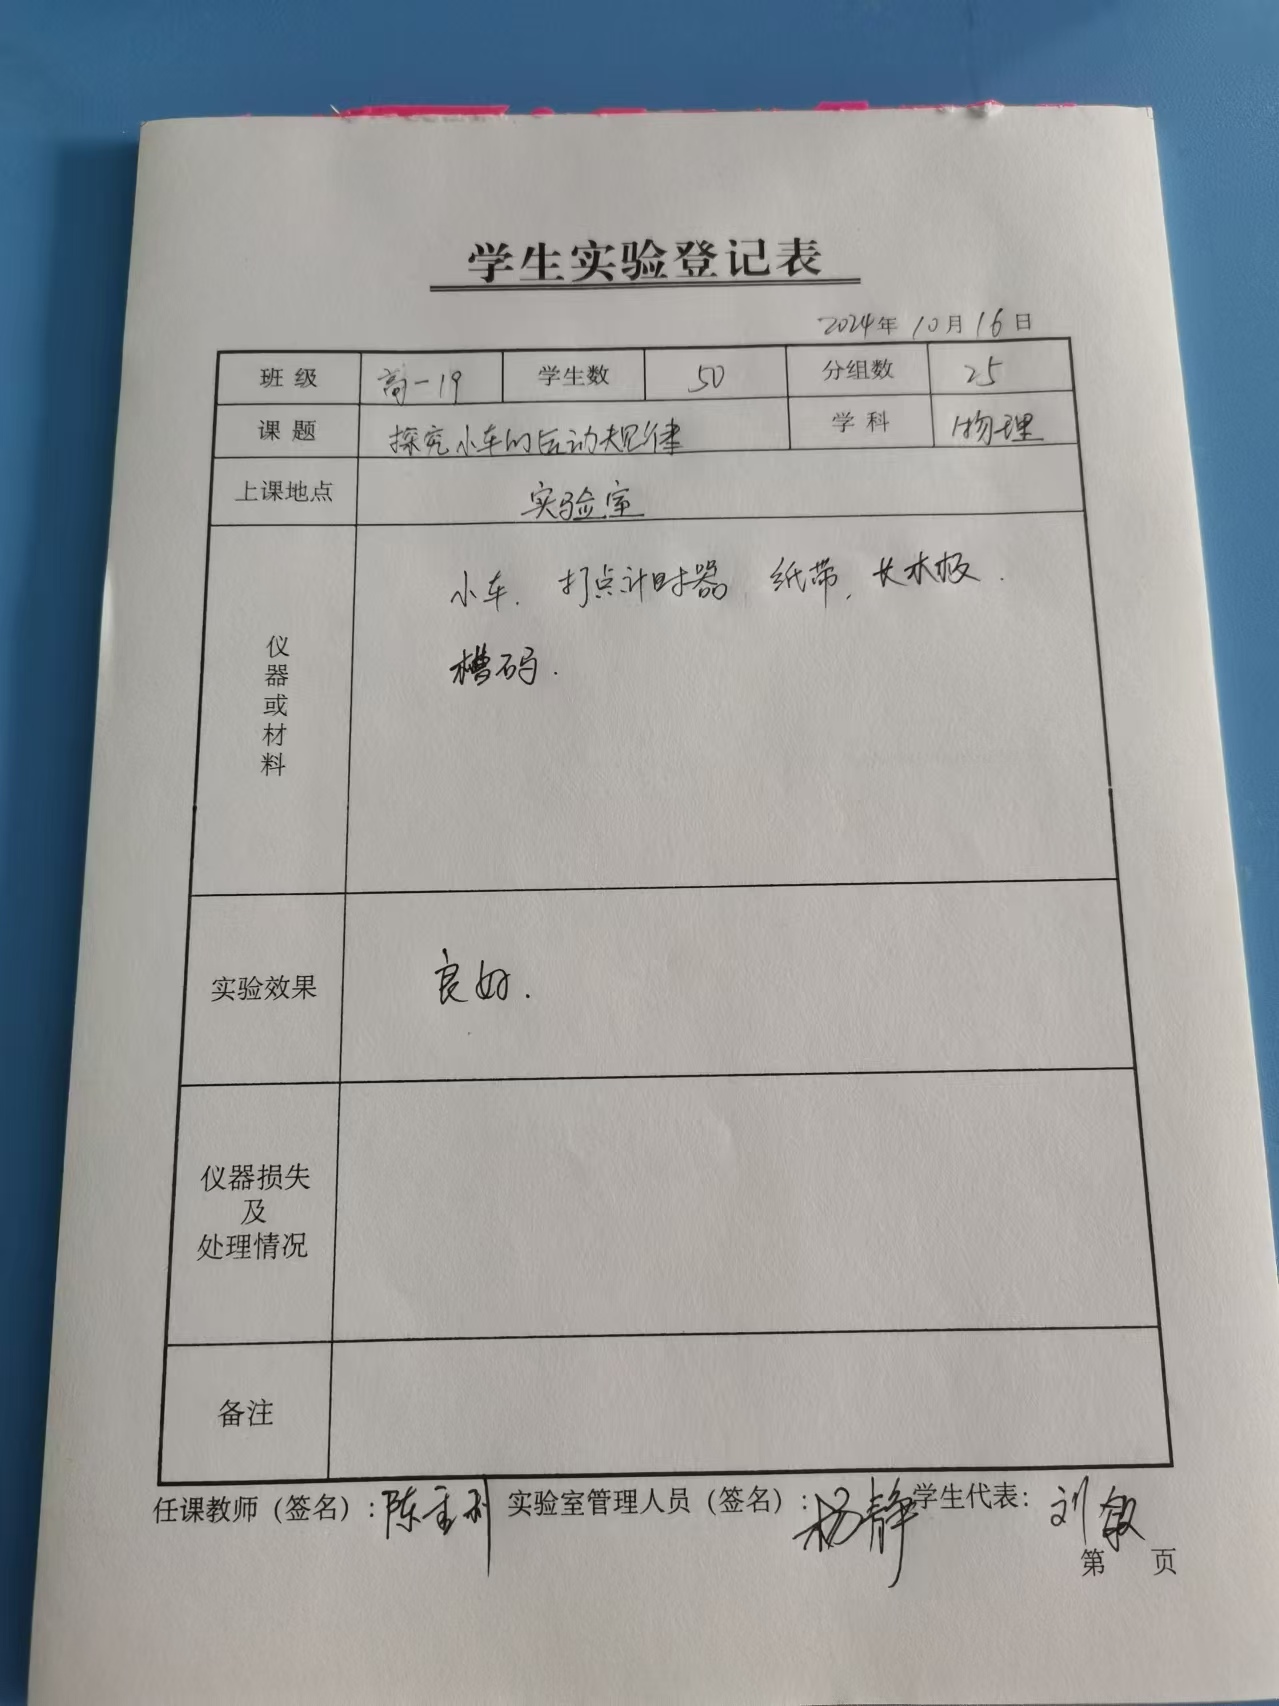 学生实验登记表
2024年10月16日
班级 高一19 学生数 50 分组数 25
课题 探究小车的运动规律 学科 物理
上课地点 实验室
仪器或材料 小车、打点计时器、纸带、长木板、
槽码.
实验效果 良好.
仪器损失
及
处理情况
备注
任课教师（签名）：陈 实验室管理人员（签名）：杨静 学生代表：刘
第 页